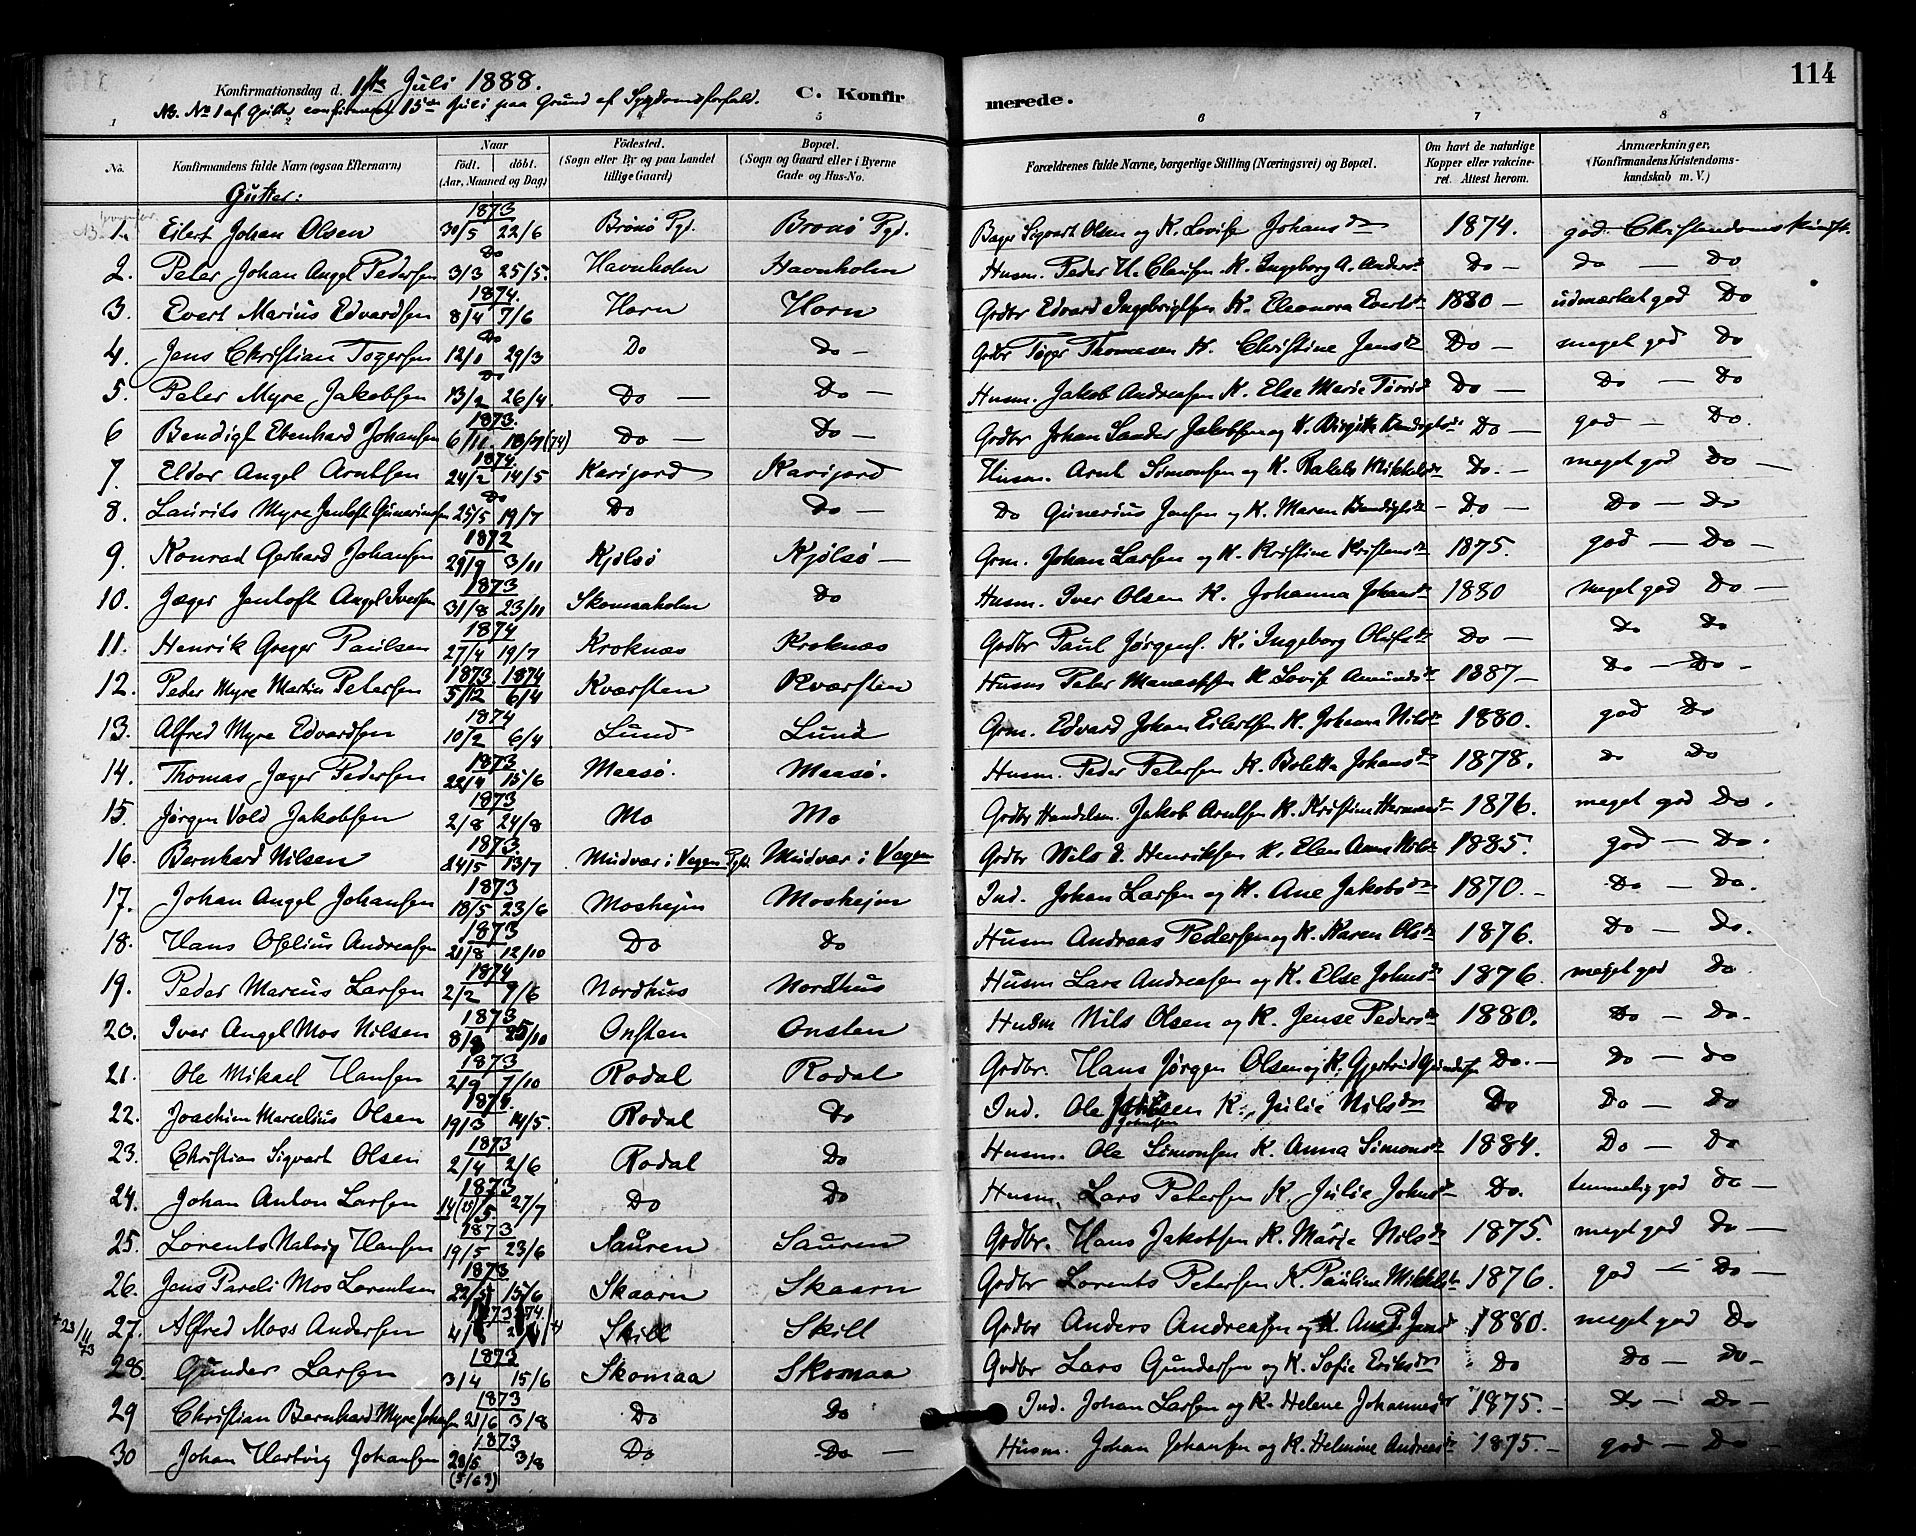 114
Konfirmationsdag d. 1ste Juli 1888.
C. Konfirmerede.
NB. No 1 af Gutter confirmeret 15de Juli paa Grund af Sygdomsforfald.
1 2 3 5 6 7 8
No. Konfirmandens fulde Navn (ogsaa Efternavn) Naar født. døbt. (Aar, Maaned og Dag) Fødested. (Sogn eller By og paa Landet tillige Gaard) Bopæl. (Sogn og Gaard eller i Byerne Gade og Hus-No. Forældrenes fulde Navne, borgerlige Stilling (Næringsvei) og Bopæl. Om havt de naturlige Kopper eller vakcineret. Attest herom. Anmærkninger, (Konfirmandens Kristendomskundskab m. V.)
Gutter:
1. Eilert Johan Olsen 1873 30/5 22/6 Brønø Pgd. Brønø Pgd. Bager Sigvart Olsen og K. Lovise Johansdr 1874. god Christendomskundsk.
2. Peter Johan Angel Pedersen Do 3/3 25/5. Havnholm Havnholm Husm. Peder H. Clausen K. Ingeborg A. Andersdr Do — Do — Do
3. Evert Marius Edvardsen 1874. 8/4 7/6 Horn Horn Grdbr Edvard Ingebrigtsen K. Eleonora Evertsdr 1880 — udmærket god Do
4. Jens Christian Tøgersen Do 12/1 29/3 Do Do — Grdbr Tøger Thomesen K. Christine Jensdr Do — meget god Do
5. Peter Myre Jakobsen Do 13/2 26/4. Do — Do — Husm. Jakob Andreasen K. Else Marie Do — Do — Do
6 Bendigt Ebenhard Johansen 1873. 6/11. 13/7 (74) Do — Do — Grdbr Johan Sander Jakobsen og K. Birgitte Bendigtsdr Do — god — Do.
7. Eldor Angel Arntsen 1874 24/2 14/5 Karijord Karijord Husm. Arnt Simonsen og K. Mikkelsdr Do. — meget god Do —
8. Laurits Myre Jentoft Guneriusen Do 25/5 19/7 Do Do — Do Gunerius Jensen og K. Maren Bendigtsdr — Do — Do — Do
9. Konrad Gerhard Johansen 1872 29/9 3/11 Kjølsø Kjølsø — Grm. Johan Larsen og K. Kristine Kristensdr 1875. god — Do —
10. Jæger Jentoft Angel Iversen 1873 31/8 23/11 Skomaaholm Do Husm. Iver Olsen K. Johanna Johansdr 1880 meget god Do —
11. Henrik Greger Paulsen 1874 27/4 19/7 Kroknæs Kroknæs Grdbr Paul Jørgens. K. Ingeborg Olufsdr Do — Do Do
12. Peder Myre Martin Petersen 1873 1874 5/12 6/4 Kværsten Kværsten Husm Peter Manassesen K Lovise Amundsdr 1887 — Do — Do —
13. Alfred Myre Edvardsen 1874 10/2 6/4 Lund Lund Grm. Edvard Johan Eilertsen K. Johanna Nilsdr 1880. god Do
14. Thomas Jæger Pedersen 1873 22/4 15/6 Maasø. Maasø. Husm. Peder Petersen K. Boletta Johansdr 1878. Do Do
15. Jørgen Vold Jakobsen 1873 2/8 24/8 Mo Mo Grdbr Handelsm. Jakob Arntsen K. Kristine Hermansdr 1876. meget god Do.
16. Bernhard Nilsen 1873. 24/5 13/7 Mudvær i Vegen Pgd. Mudvær i Vegen Grdbr Nils D. Henriksen K. Elen Anna Nilsdr 1885. god — Do.
17. Johan Angel Johansen 1873 18/5 23/6 Moshejen Moshejen Ind. Johan Larsen og K. Ane Jakobsdr 1870. — Do — Do.
18. Hans Ofelius Andreasen 1873 21/8 12/10 Do Do Husm Andreas Pedersen og K. Karen Olsdr 1876. Do — Do.
19. Peder Marcus Larsen 1874 2/2 9/6 Nordhus Nordhus Husm Lars Andreasen og K. Else Johnsdr 1876. meget god Do.
20. Iver Angel Mos Nilsen 1873 8/8 25/10 Onsten Onsten Husm Nils Olsen og K. Jense Pedersdr 1880. Do — Do.
21. Ole Mikael Hansen 1873 2/9 7/10 Rodal Rodal Grdbr. Hans Jørgen Olsen og K. Gjertrud Do. — Do — Do
22. Joachim Marcelius Olsen 1874. 19/3 14/5. Rodal Do Ind. Ole Johnsen K. Julie Nilsdr Do Do — Do
23. Christian Sigvart Olsen 1873 2/4 2/6 Rodal Do Husm. Ole Simonsen K. Anna Simonsdr 1884. Do — Do
24. Johan Anton Larsen 1873 14(15)/5. 27/7 Do Do Husm. Lars Petersen K. Julie Johnsdr Do. temmelig god Do —
25. Lorents Hansen 1873 19/5 23/6 Sauren Sauren Grdbr. Hans Jakobsen K. Marje Nilsdr 1875. meget god Do —
26. Jens Pareli Mos Lorentsen 1873 22/5 15/6 Skaarn Skaarn Grdbr Lorents Petersen K. Pauline Mikkelsdr 1876. god — Do —
+23/11 73 27. Alfred Moss Andersen 1873 74. Skill Skill Grdbr Anders Andreasen og K. 1880. meget god Do
28. Gunder Larsen 1873 3/4 15/6 Skomaa Skomaa Grdbr Lars Gundersen og K. Sofie Eriksdr Do Do — Do —
29 Christian Bernhard Myre Johansen 1873 21/6 3/8 Do Do Ind. Johan Larsen og K. Helene Johannesdr 1875. — Do — Do —
30 Johan Hartvig Johansen 1873 28/5 3/8 Do Do — Husm. Johan Johansen og K. Helmine Andreasdr 1875. — god — Do —
(5/63)